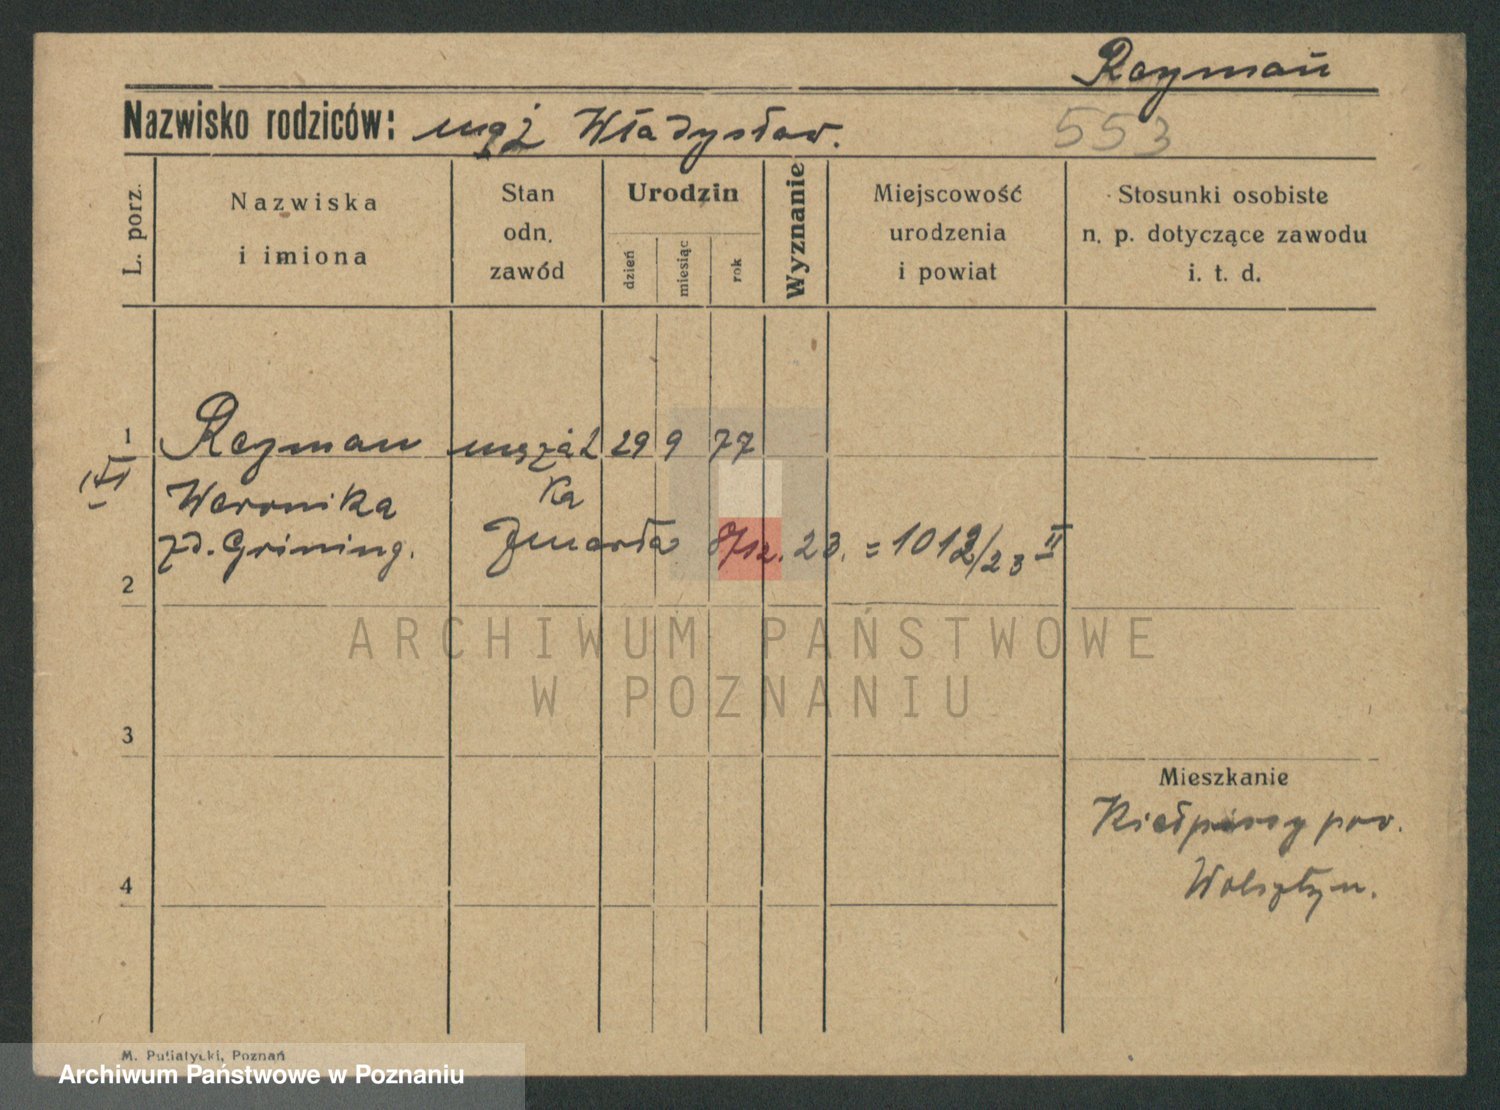 Reymań
Nazwisko rodziców: mąż Władysław.
553
L. porz.
Nazwiska
i imiona
Stan
odn.
zawód
Urodzin
dzień
miesiąc
rok
Wyznanie
Miejscowość
urodzenia
i powiat
Stosunki osobiste
n. p. dotyczące zawodu
i. t. d.
1 Reyman mężat 29 9 77
Weronika ka
zd. Grining. Zmarła 8/12. 23. = 1012/23 II
2
ARCHIWUM PAŃSTWOWE
W POZNANIU
3
Mieszkanie
Kiełpiny pow.
Wolsztyn.
4
M. Putiatycki, Poznań
Archiwum Państwowe w Poznaniu